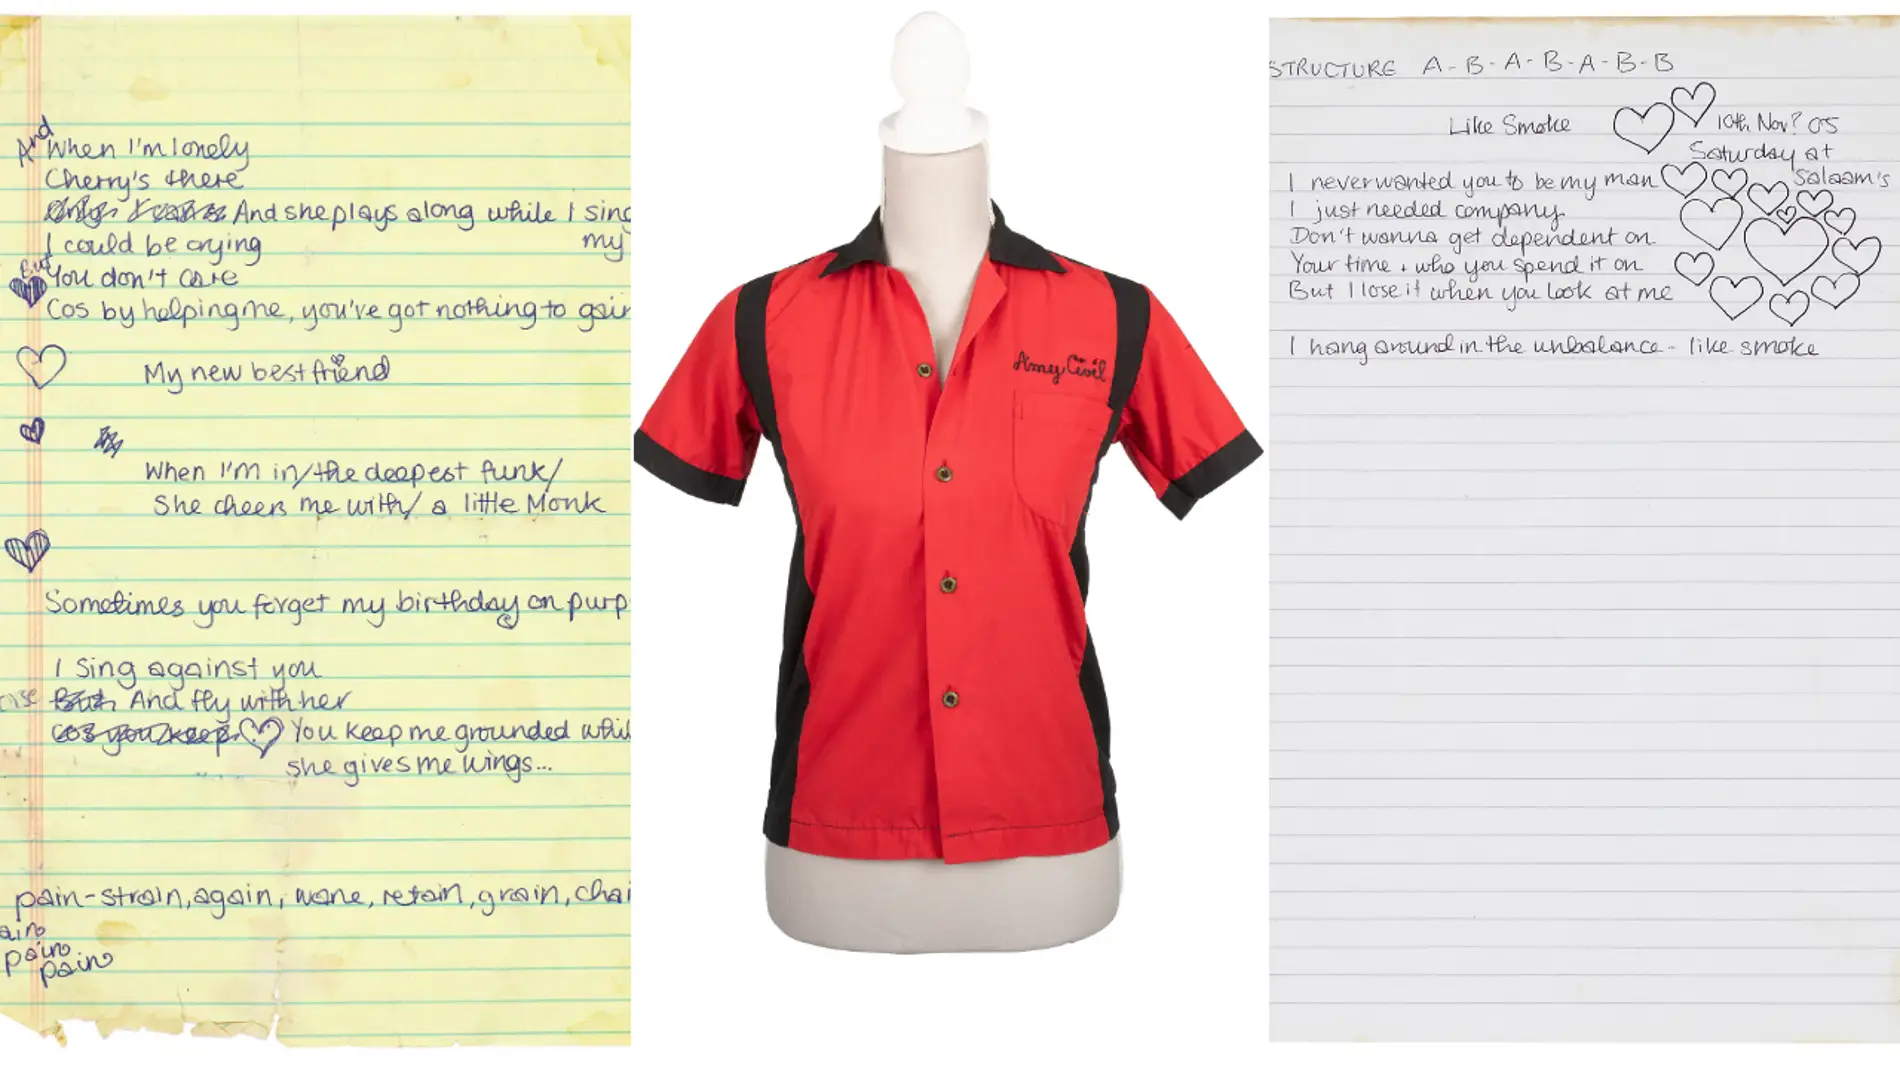 And
When I'm lonely
Cherry's there
And she plays along while I sing
my
I could be crying
But
You don't care
Cos by helping me, you've got nothing to gain
My new best friend
When I'm in/the deepest funk/
She cheers me with/ a little Monk
Sometimes you forget my birthday on purp
I sing against you
But And fly with her
cos you keep You keep me grounded whil
she gives me wings...
pain-strain, again, wane, retain, grain, chai
ain
pain
pain
Amy Civil
STRUCTURE A-B-A-B-A-B-B
Like Smoke
10th Nov? 05
Saturday at
Salaam's
I never wanted you to be my man
I just needed company
Don't wanna get dependent on
Your time + who you spend it on
But I lose it when you look at me
I hang around in the unbalance - like smoke